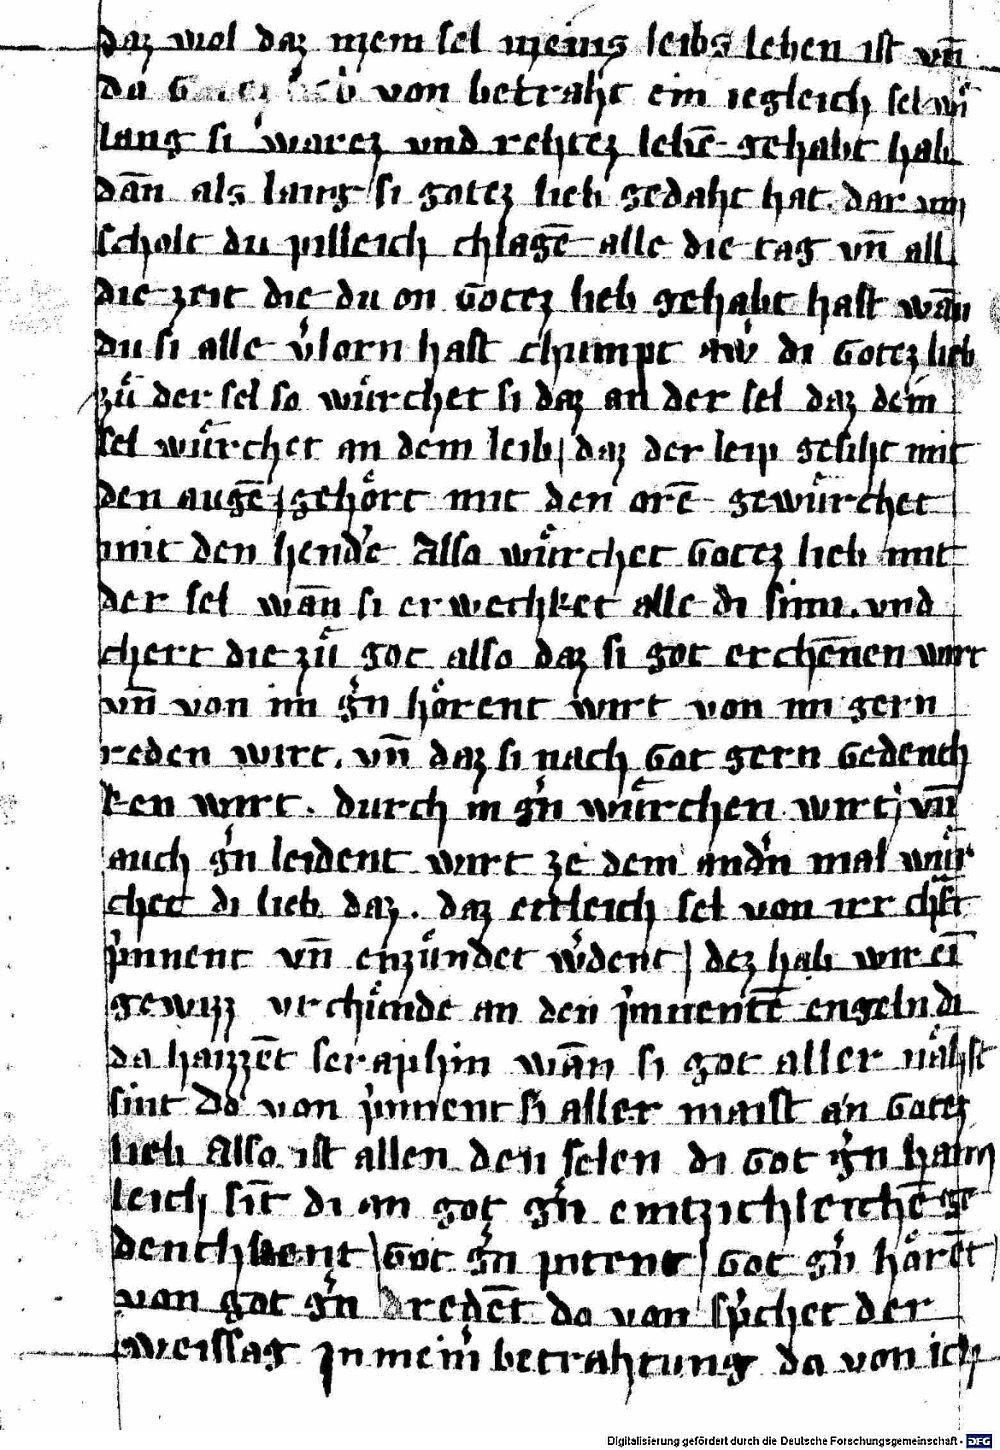 daz wol daz mein sel meins leibs leben ist vn̄
da von betraht ein iegleich sel wi͛
lang si warez vnd rehtez lebē gehabt hab
dān als lang si gotez lieb gedaht hat. dar vm
scholt du pilleich chlagē alle die tag vn̄ all
die zeit die du on Gotez lieb gehabt hast wān
du si alle v͛lorn hast chumpt aw͛ di Gotez lieb
zuͤ der sel so wuͤrchet si daz an der sel daz dem
sel wuͤrchet an dem leib / daz der leip gesiht mit
den augē / gehoͤrt mit den orē gewuͤrchet
mit den hendē Also wuͤrchet Gotez lieb mit
der sel wān si erwechket alle di sinn. vnd
chert die zuͤ got also daz si got erchēnen wirt
vn̄ von im g͛n hoͤrent wirt von im gern
reden wirt. vn̄ daz si nach Got gern Gedench
ken wirt. durch in g͛n wuͤrchen wirt / vn̄
auch g͛n leident wirt ze dem and͛n mal wuͤr
chet di lieb daz. daz etleich sel von irr chͤft
p͛nnent vn̄ enzuͤndet w͛dent / dez hab wir eī
gewizz vrchuͤnde an den p͛nnentē engeln di
da haizzēt seraphin wān si got aller naͤhst
sint do von p͛nnent si aller maist an Gotez
lieb Also ist allen den selen di Got g͛n haim
leich sīt di an got g͛n emtzichleichē ge
denchkent / Got g͛n pitent / Got g͛n hoͤrēt /
von got g͛n redēt do von sp͛chet der
weissag In mein͛ betrahtung da von ich
Digitalisierung gefördert durch die Deutsche Forschungsgemeinschaft - DFG